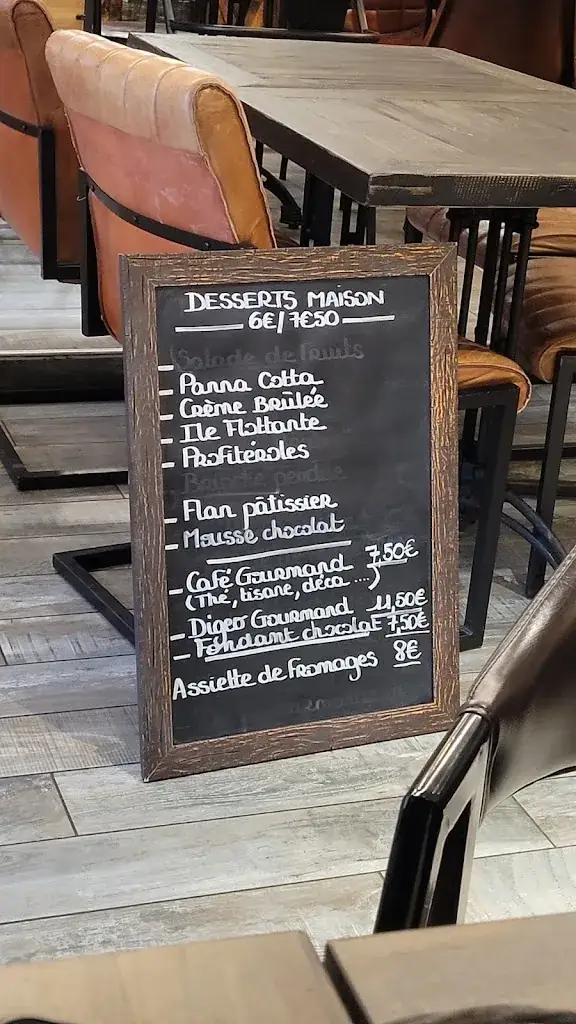 DESSERTS MAISON
6€/7€50
Salade de Fruits
- Panna Cotta
- Crème Brûlée
- Ile Flottante
- Profitéroles
Brioche perdue
- Flan pâtissier
- Mousse chocolat
- Café Gourmand 7,50€
(Thé, tisane, déca ...)
- Digeo Gourmand 11,50€
- Fondant chocolat 7,50€
Assiette de Fromages 8€